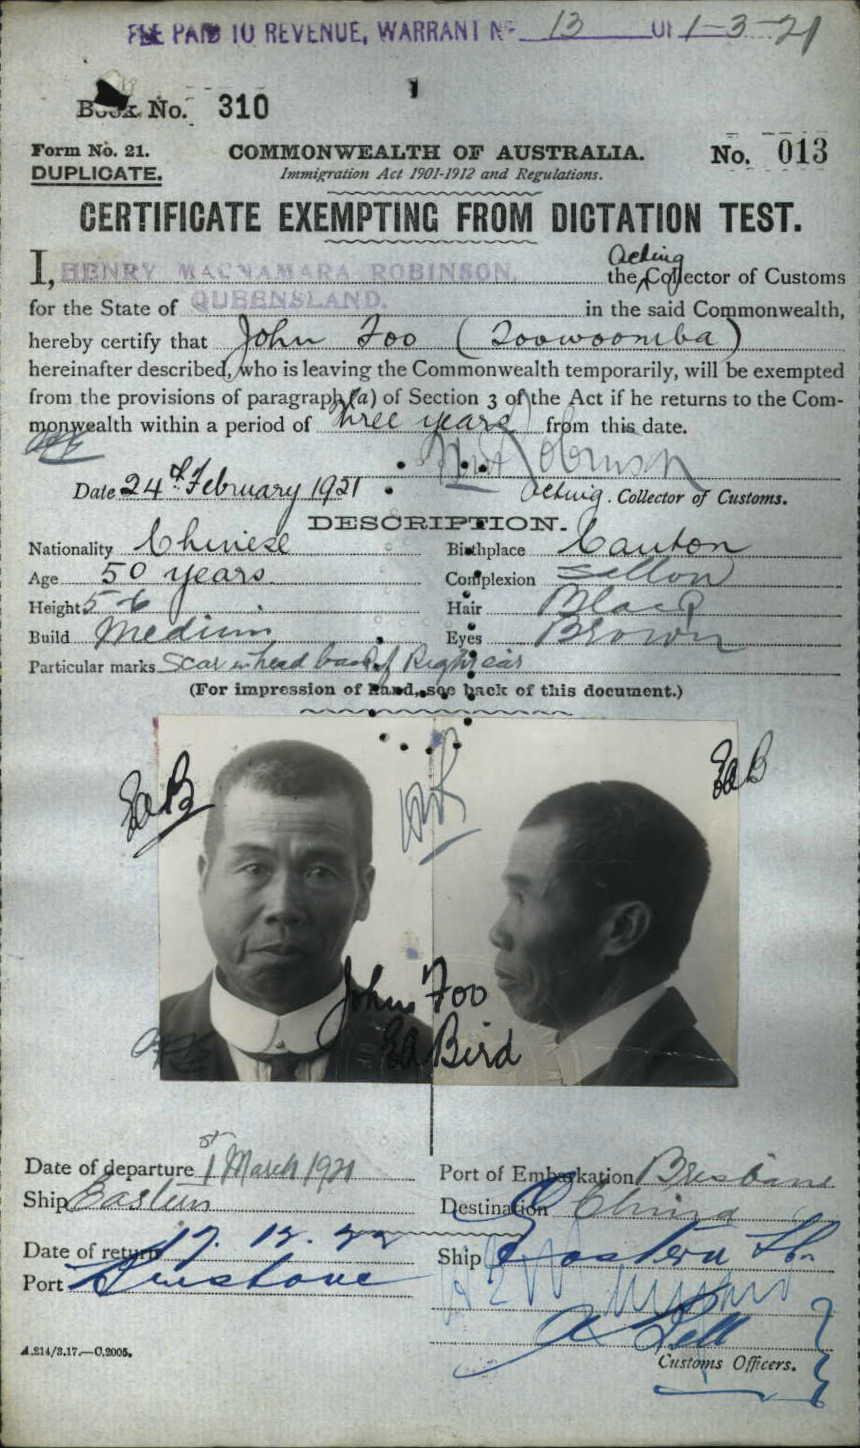 FEE PAID TO REVENUE, WARRANT No 13 OF 1-3-21
Book No. 310
Form No. 21. COMMONWEALTH OF AUSTRALIA. No. 013
DUPLICATE. Immigration Act 1901-1912 and Regulations.
CERTIFICATE EXEMPTING FROM DICTATION TEST.
I, HENRY MACNAMARA ROBINSON, the Acting Collector of Customs
for the State of QUEENSLAND. in the said Commonwealth,
hereby certify that John Foo (Toowoomba)
hereinafter described, who is leaving the Commonwealth temporarily, will be exempted
from the provisions of paragraph (a) of Section 3 of the Act if he returns to the Com-
monwealth within a period of three years from this date.
Robinson
Date 24th February 1921 Acting Collector of Customs.
DESCRIPTION.
Nationality Chinese Birthplace Canton
Age 50 years Complexion Sallow
Height 5-6 Hair Black
Build Medium Eyes Brown
Particular marks Scar on head back of Right ear
(For impression of Hand, see back of this document.)
EaB EaB
John Foo
Ea Bird
Date of departure 1st March 1921 Port of Embarkation Brisbane
Ship Eastern Destination China
Date of return 17. 12. 22 Ship Eastern
Port Brisbane
Customs Officers.
A.214/3.17.—C.2005.